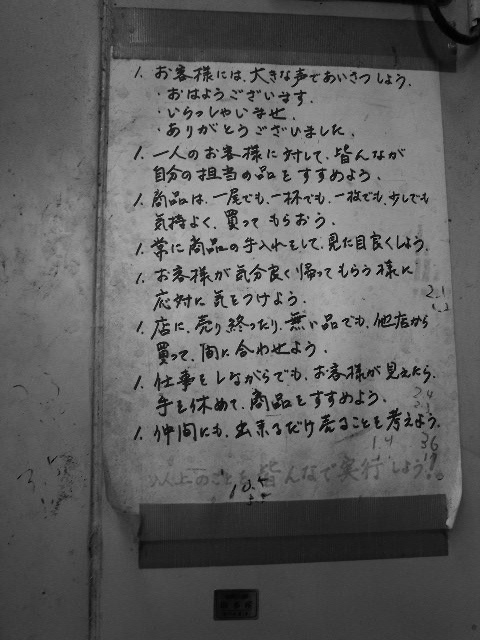 1. お客様には、大きな声であいさつしよう。
・おはようございます。
・いらっしゃいませ。
・ありがとうございました。
1. 一人のお客様に対して、皆んなが
自分の担当の品をすすめよう。
1. 商品は、一尾でも、一杯でも、一枚でも、少しでも
気持よく、買ってもらおう。
1. 常に商品の手入れをして、見た目良くしよう。
1. お客様が気分良く帰ってもらう様に
応対に気をつけよう。
1. 店に、売り終ったり、無い品でも、他店から
買って、間に合わせよう。
1. 仕事をしながらでも、お客様が見えたら、
手を休めて、商品をすすめよう。
1. 仲間にも、出来るだけ売ることを考えよう。
以上のことを皆んなで実行しよう。